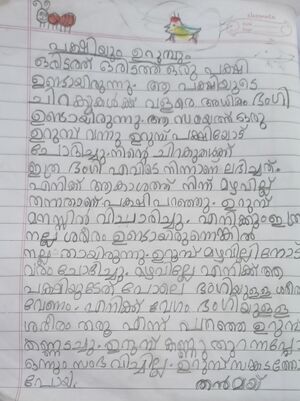 പക്ഷിയും ഉറുമ്പും
ഒരിടത്ത് ഒരിടത്ത് ഒരു പക്ഷി
ഉണ്ടായിരുന്നു. ആ പക്ഷിയുടെ
ചിറകുകൾക്ക് വളരെ അധികം ഭംഗി
ഉണ്ടായിരുന്നു. ആ സമയത്ത് ഒരു
ഉറുമ്പ് വന്നു ഉറുമ്പ് പക്ഷിയോട്
ചോദിച്ചു. നിന്റെ ചിറകുകൾക്ക്
ഇത്ര ഭംഗി എവിടെ നിന്നാണ് ലഭിച്ചത്.
എനിക്ക് ആകാശത്ത് നിന്ന് മഴവില്ല്
തന്നതാണ് പക്ഷി പറഞ്ഞു. ഉറുമ്പ്
മനസ്സിൻ വിചാരിച്ചു. എനിക്കും ഇത്ര
നല്ല ശരീരം ഉണ്ടായിരുന്നെങ്കിൽ
നല്ല തായിരുന്നു. ഉറുമ്പ് മഴവില്ലിനോട്
വരം ചോദിച്ചു. മഴവില്ലേ എനിക്ക് ആ
പക്ഷിയുടേത് പോലെ ഭംഗിയുള്ള ശരീരം
വേണം. എനിക്ക് വേഗം ഭംഗിയുള്ള
ശരീരം തരൂ എന്ന് പറഞ്ഞ ഉറുമ്പ്
കണ്ണടച്ചു. ഉറുമ്പ് കണ്ണു തുറന്നപ്പോൾ
ഒന്നും സംഭ വിച്ചില്ല. ഉറുമ്പ് സങ്കടത്തോടെ
പോയി.
തൻമയ്
classmate